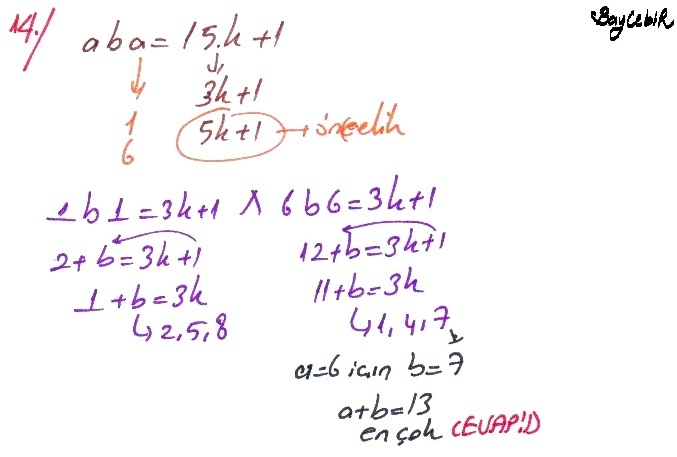 BayCebiR
14./ aba = 15.k+1
3k+1
1 5k+1 → öncelik
6
1b1 = 3k+1 ∧ 6b6 = 3k+1
2+b = 3k+1 12+b = 3k+1
1+b = 3k 11+b = 3k
↳ 2,5,8 ↳ 1,4,7
a=6 için b=7
a+b=13
en çok CEVAP:D